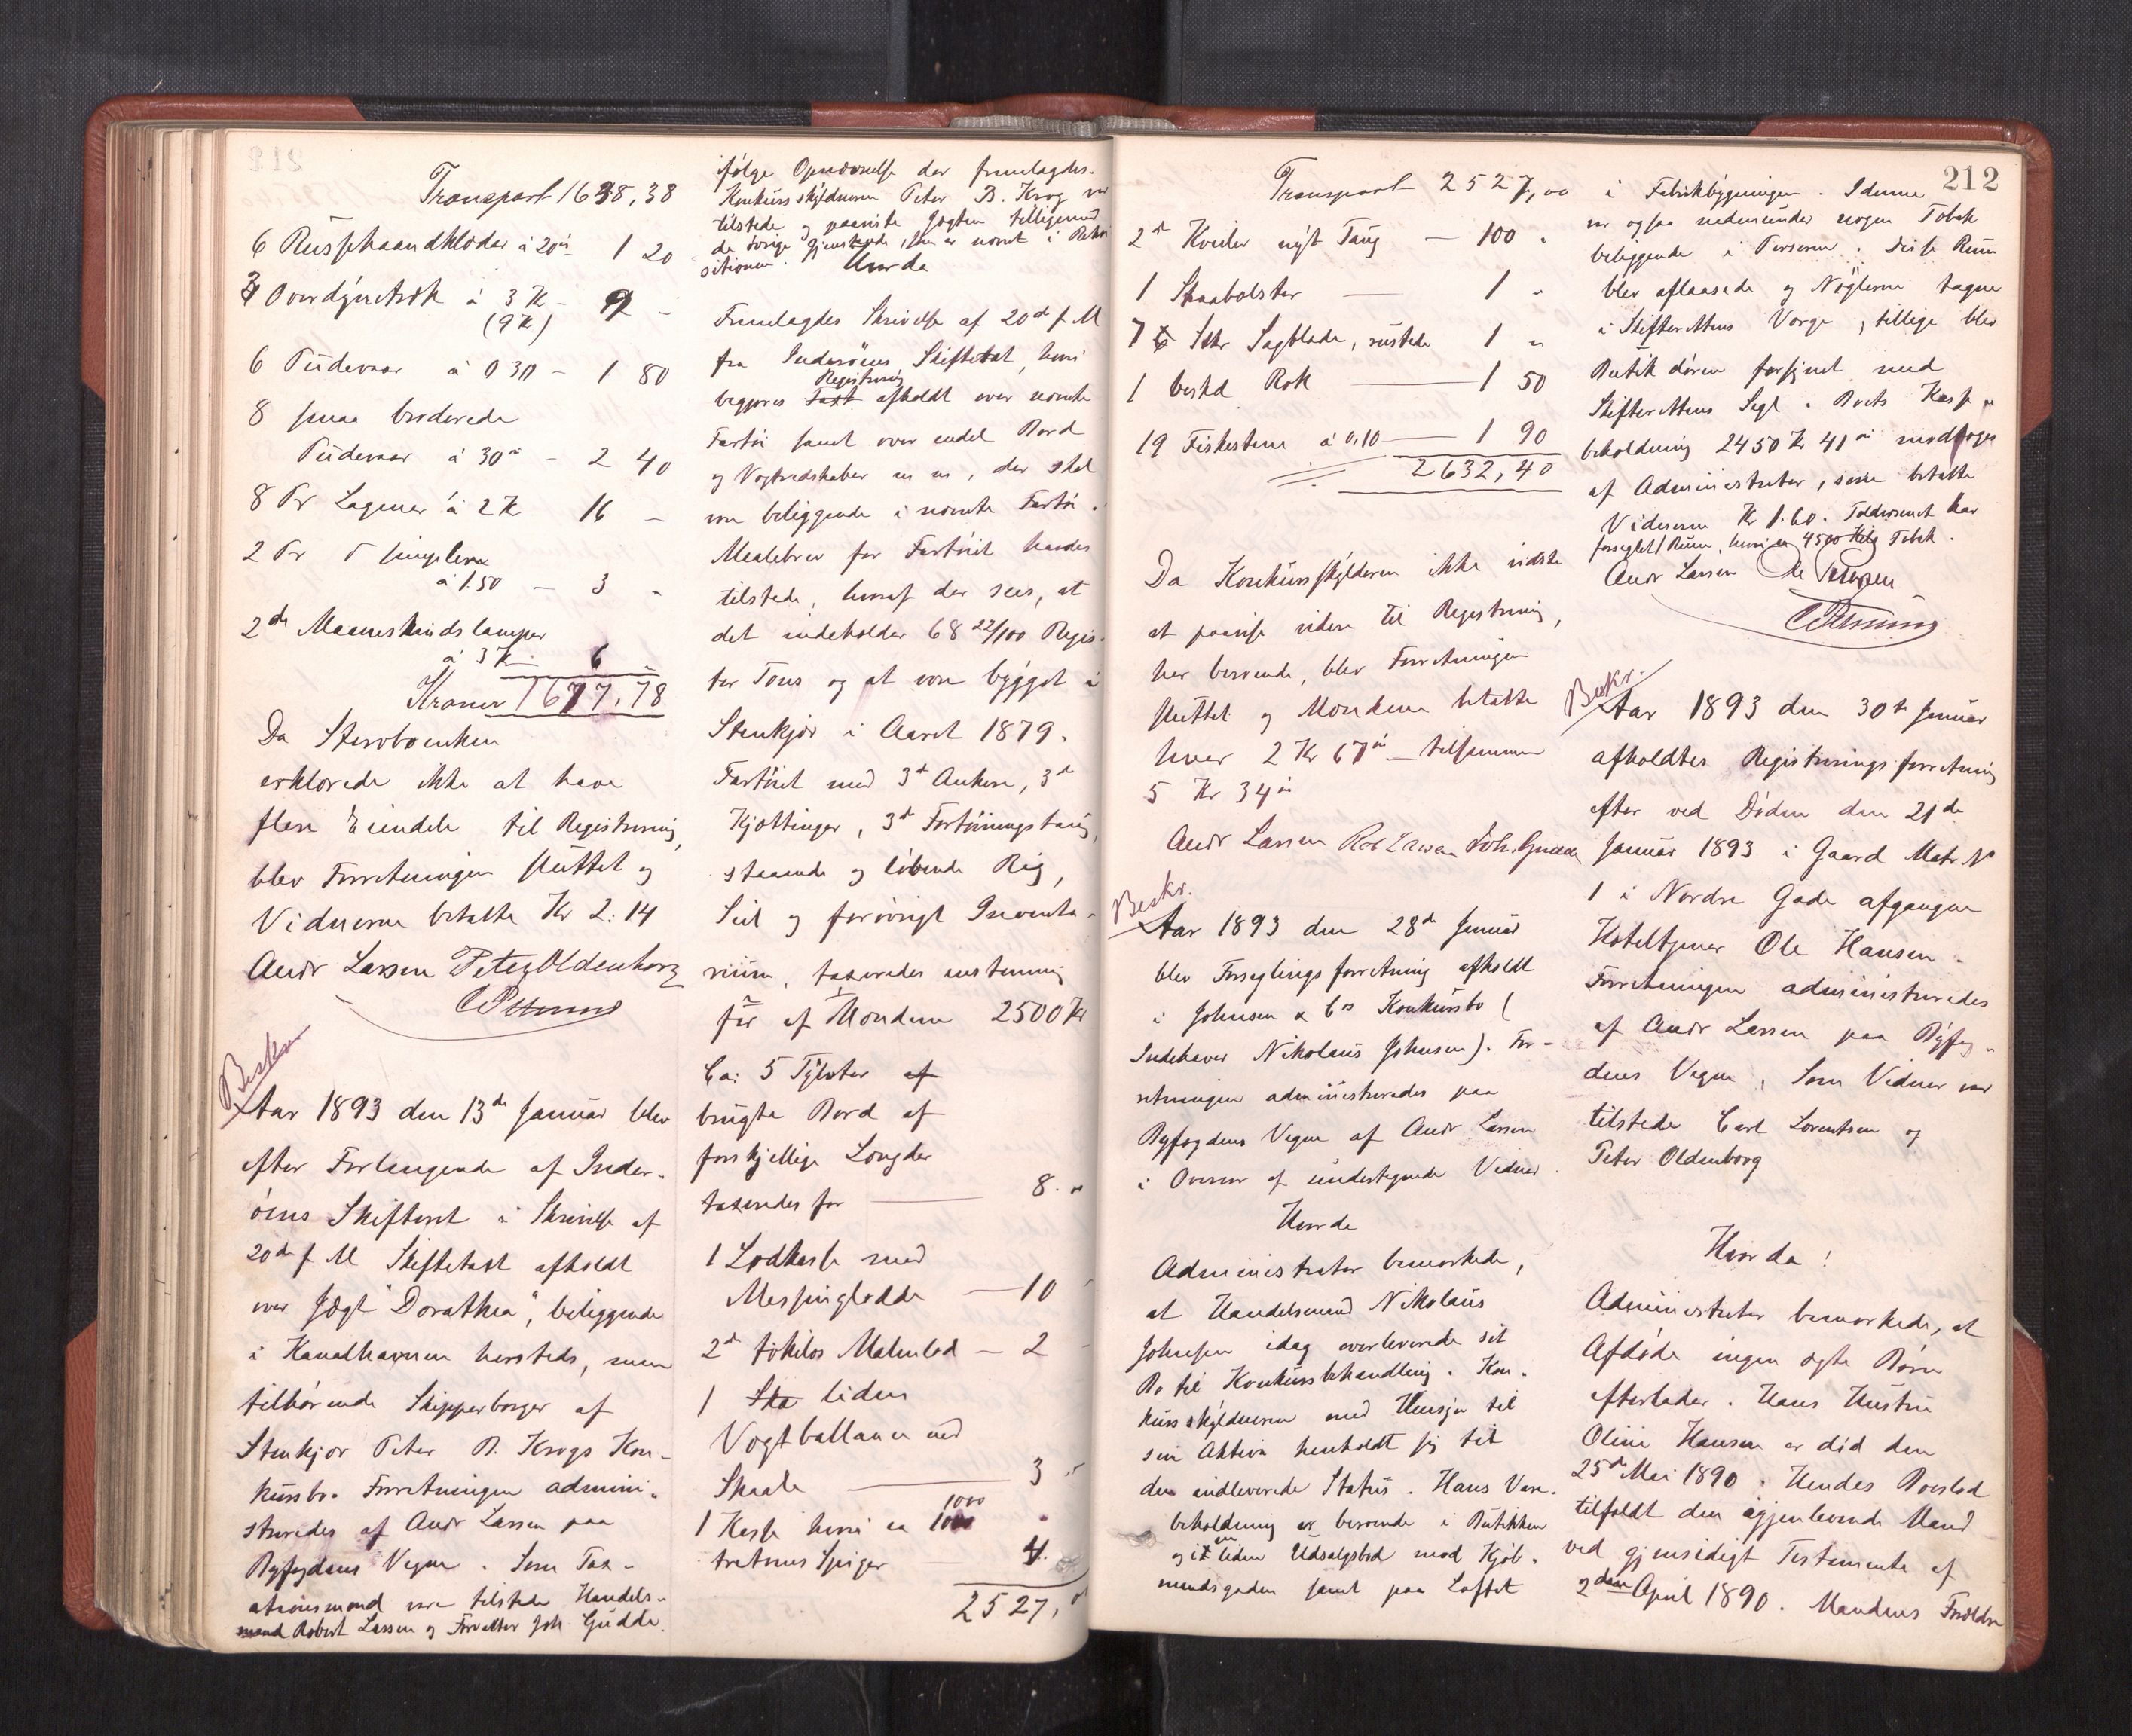 Transport 1638,38
6 Rüssehaandklæder à 20ö 1 20
3 Overdýnetræk à 3 Kr - 9 -
(9 Kr)
6 Püdevaar à 0 30 - 1 80
8 smaa broderede
Püdevaar à 30ö - 2 40
8 Pr Lagener à 2 Kr 16 -
2 Pr
à 1.50 - 3 -
2de Maaneskindslamper
à 3 Kr. 6 -
Kroner 1677,78
Da Stervboenken
erklærede ikke at have
flere Eiendele til Registrering,
blev Forretningen slüttet og
Vidnerne betalte Kr 2.14
Andr Larsen Peter Oldenborg
Beskr
Aar 1893 den 13de Januar blev
efter Forlangende af Inder-
öens Skifteret i Skrivelse af
20de f M Skiftetaxt afholdt
over Jægt "Dorathea", beliggende
i Kanalhavnen hersteds, som
tilhörende Skipperborger af
Stenkjær Peter B. Krogs Kon-
kürsbo. Forretningen admini-
streredes af Andr Larsen paa
Byfogdens Vegne. Som Tax-
ationsmænd var tilstede Handels-
mand Robert Larsen og Forvalter Joh. Güdde.
ifølge Opnævnelse der fremlagdes.
Konkürsskýldneren Peter B. Krog var
tilstede og paaviste Jægten tilligemed
de övrige Gjenstande, som er nævnt i Rekvi
sitionen. Hvorda
Fremlagdes Skrivelse af 20de f M
fra Inderöens Skifteret, hvori
Registrering
begjæres Taxt afholdt over nævnte
Fartöi samt over endel Bord
og Vægtredskaber m m, der skal
være beliggende i nævnte Fartöi.
Maalebrev for Fartöiet havdes
tilstede, hvoraf der sees, at
det indeholder 68 22/100 Regis-
ter Tons og at være býgget i
Stenkjær i Aaret 1879.
Fartöiet med 3de Ankere, 3de
Kjættinger, 3de Fortöiningstaüg,
staaende og löbende Rig,
Seil og forövrigt Inventa-
riüm, taxeredes enstemmig
for af Mændene 2500 Kr
Ca: 5 Týlvter af
brügte Bord af
forskjellige Længder
taxeredes for 8. "
1 Lodkasse med
Messinglodde - 10 -
2de Malmlod - 2 -
1 Ska liden
Vægtballance med
Skaale 3 -
1000
1 Kasse hvori ca 1000
tretoms Spiger 4.
2527,00
212
Transport 2527,00
2de Kveiler nýt Taüg - 100 "
1 Skaabolster - 1 "
7 6 Stkr Sagblade, rüstede 1 "
1 beskd Rok 1 50
19 Fiskestene à 0,10 1 90
2632,40
Da Konkürsskýldneren ikke vidste
at paavise videre til Registrering,
her beroende, blev Forretningen
slüttet og Mændene betalte
hver 2 Kr 67ö - tilsammen
5 Kr 34ö
Andr Larsen Rob Larsen Joh. Gudde
Beskr.
Aar 1893 den 28de Januar
blev Forseglingsforretning afholdt
i Johnsen & Cos Konkürsbo (
Indehaver Nikolaüs Johnsen). For-
retningen administreredes paa
Byfogdens Vegne af Andr Larsen
i Overvær af undertegnede Vidner.
Hvorda
Administrator bemærkede,
at Handelsmand Nikolaüs
Johnsen idag overleverede sit
Bo til Konkürsbehandling. Kon-
kürsskýldneren med Hensyn til
sin Aktiva henholdt sig til
den indleverede Statüs. Hans Vare-
beholdning er beroende i Bütikken
og i en liden Udsalgsbod mod Kjöb-
mandsgaden samt paa Loftet
i Fabrikbýgningen. I denne
var ogsaa nedenünder nogen Tobak
beliggende i Pressene. Disse Rum
blev aflaasede og Nöglerne tagne
i Skifterettens Værge, tillige blev
Bütikdören forsynet med
Skifterettens Segl. Boets Kasse-
beholdning 2450 Kr 41ö modtoges
af Administrator, som betalte
Vidnerne Kr 1.60. Toldvæsenet har
forseglet 1 Rum, hvori ca 4500 Kilg Tobak.
Andr Larsen Ole Petersen
Beskr.
Aar 1893 den 30te Januar
afholdtes Registreringsforretning
efter ved Döden den 21de
Januar 1893 i Gaard Matr. No
1 i Nordre Gade afgangne
Hoteltjener Ole Hansen.
Forretningen administreredes
af Andr Larsen paa Býfog-
dens Vegne. Som Vidner var
tilstede Carl Lorentsen og
Peter Oldenborg
Hvorda!
Administrator bemærkede, at
Afdöde ingen ægte Börn
efterlader. Hans Hustru
Oline Hansen er död den
25de Mai 1890. Hendes Boeslod
tilfaldt den igjenlevende Mand
ved gjensidigt Testamente af
2den April 1890. Mandens Forældre